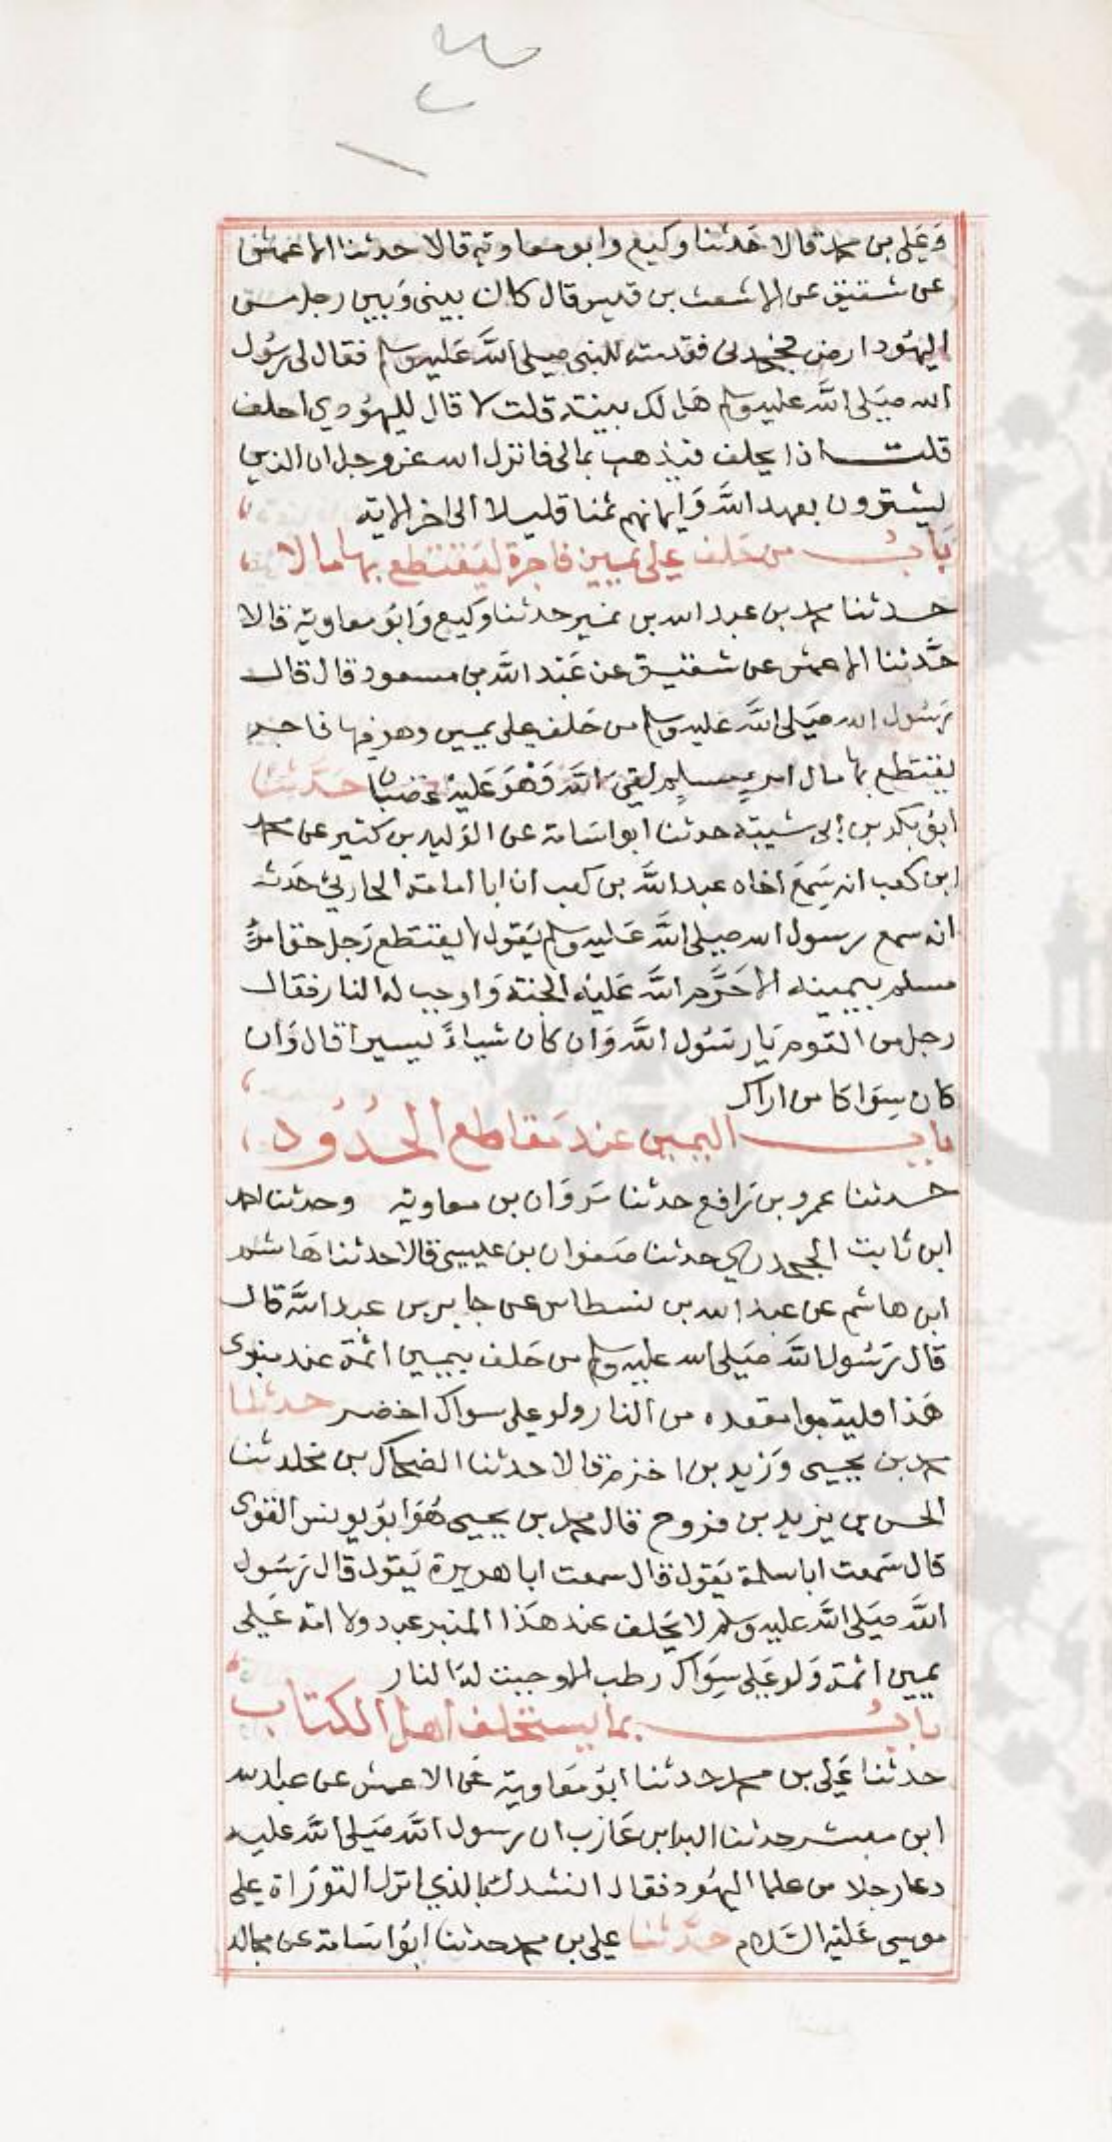 وَعَلي بن محمد قالا حَدثنا وكيع وابو معاوية قالا حدثنا الاعمش
عن شقيق عن الاشعث بن قيس قال كان بيني وَبين رجل من
اليهُود ارض فجحدني فقدمته للنبي صلى اللَّه عَليه وسلم فقال لي رسُول
الله صَلى اللَّه عليه وسلم هَل لك بينة قلت لا قال لليهُودي احلف
قلت اذا يحلف فيذهب بمالي فانزل الله عز وجل ان الذين
يشترون بعهد اللَّه وَايمانهم ثمنا قليلا الى اخر الاية
بَابُ من حَلف على يمين فاجرة ليَقتطع بها مالا
حدثنا محمد بن عبد الله بن نمير حدثنا وكيع وَابوُ معاوية قالا
حَدثنا الاعمش عن شقيق عن عَبْد اللَّه بن مسعود قال قال
رَسُول الله صَلى اللَّه عَليه وسلم من حَلف على يمين وهو فيها فاجر
يقتَطع بها مال امرِيٍ مسلِمٍ لقيَ اللَّه وَهْوَ عَليهْ غضبان حَدَّثنَا
ابوُ بكر بن ابي شيبَة حدثنا ابو اسَامة عن الوَليد بن كثير عن محمد
ابن كعب انه سَمعَ اخاه عبد اللَّه بن كعب ان ابا امامة الحارثي حَدثه
انه سمع رسول الله صلى اللَّه عَليه وسلم يَقول لا يقتطع رَجل حق امرئ
مسلم بيمينه الا حَرَّم اللَّه عَليهْ الجنة وَاوجب له النار فقال
رجل من القوم يَا رسُول اللَّه وَان كان شياءً يسيرا قال وَان
كان سِوَاكا من اراك
باب اليمين عند مَقاطع الحُدُود
حدثنا عمرو بن رَافع حدثنا مَروَان بن معاوية وحدثنا احمد
ابن ثابت الجحدري حدثنا صَفوان بن عيسى قالا حدثنا هَاشم
ابن هاشم عن عبد الله بن نسطاس عن جابر بن عبد اللَّه قال
قال رَسُول اللَّه صَلى الله عليه وسلم من حَلف بيمين اثمة عند منبري
هَذا فليتبوا مقعده من النار ولو على سواك اخضر حدثنا
محمد بن يحيى وَزيد بن اخزم قالا حدثنا الضحاك بن مخلد ثنا
الحسن بن يزيد بن فروح قال محمد بن يحيى هُوَ ابوُ يونس القوي
قال سَمعت ابا سلمة يَقول قال سمعت ابا هريرة يَقول قال رَسُول
اللَّه صَلى اللَّه عليه وَسلم لا يَحلف عند هَذا المنبر عبد ولا امة عَلى
يمين اثمة وَلو عَلى سِوَاك رطب الا وجبت لهَ النار
بابُ بما يستحلف اهل الكتاب
حدثنا عَلي بن محمد حدثنا ابوُ مَعَاوية عَن الاعمش عن عبد الله
ابن مرة حدثنا البرا بن عَازب ان رسول اللَّه صَلى اللَّه عليه
دعا رجلا من علما اليهُود فقال انشدك بالذي انزل التورَاة على
موسى عَليْه السَّلام حَدَّثنا علي بن محمد حدثنا ابوُ اسَامة عن مجالد